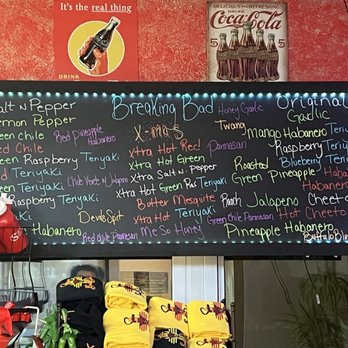 It's the real thing
DRINK
DELICIOUS and REFRESHING
DRINK
Coca-Cola
Salt N Pepper
Lemon Pepper
Green Chile
Red Chile
Green Raspberry Teriyaki
Red Teriyaki
Green Teriyaki
Habanero
Red Pineapple Habanero
Chile Verde N Jalapeño
Devils Spit
Red Chile Parmesan
Breaking Bad
X-mas
Xtra Hot Red
Xtra Hot Green
Xtra Salt n. Pepper
Xtra Hot Green Ras Teriyaki
Butter Mesquite
Xtra Hot Teriyaki
Me So Honey
Honey Garlic
Twang
Parmesan
Roasted Green
Peach
Green Chile Parmesan
Original
Garlic
Mango Habanero
Raspberry Teri
Blueberry Teri
Pineapple Habanero
Teriyaki
Jalapeño Cheeto
Hot Cheeto
Pineapple Habanero
Buffalo Bl